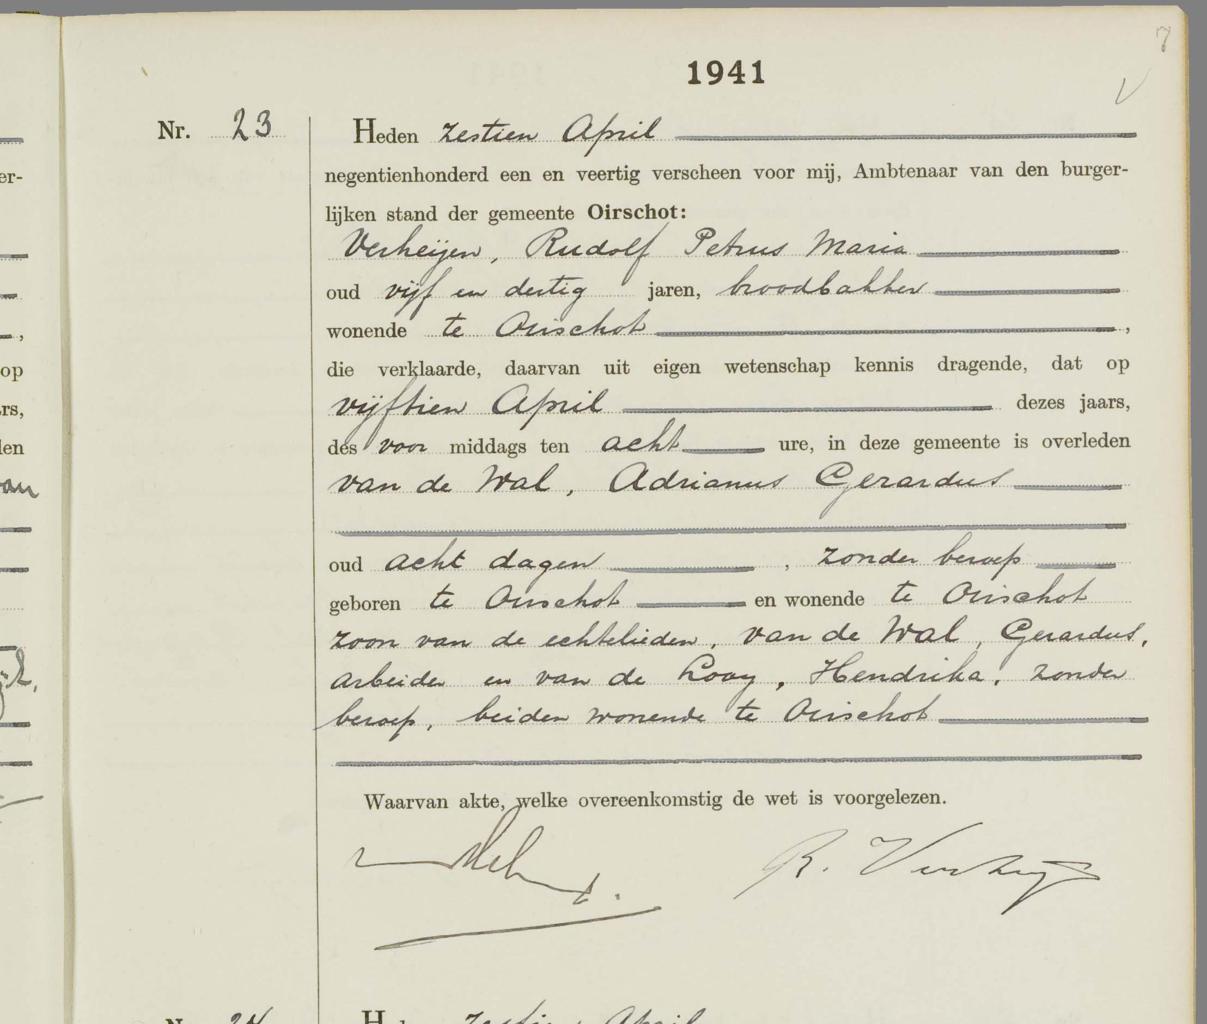 7
1941
Nr. 23
Heden zestien April
negentienhonderd een en veertig verscheen voor mij, Ambtenaar van den burger-
lijken stand der gemeente Oirschot:
Verheijen, Rudolf Petrus Maria
oud vijf en dertig jaren, broodbakker
wonende te Oirschot ,
die verklaarde, daarvan uit eigen wetenschap kennis dragende, dat op
vijftien April dezes jaars,
des voor middags ten acht ure, in deze gemeente is overleden
van de Wal, Adrianus Gerardus
oud acht dagen , zonder beroep
geboren te Oirschot en wonende te Oirschot
zoon van de echtelieden, van de Wal, Gerardus,
arbeider en van de Looy, Hendrika, zonder
beroep, beiden wonende te Oirschot
Waarvan akte, welke overeenkomstig de wet is voorgelezen.
R. Verheijen
er-
,
op
rs,
len
van